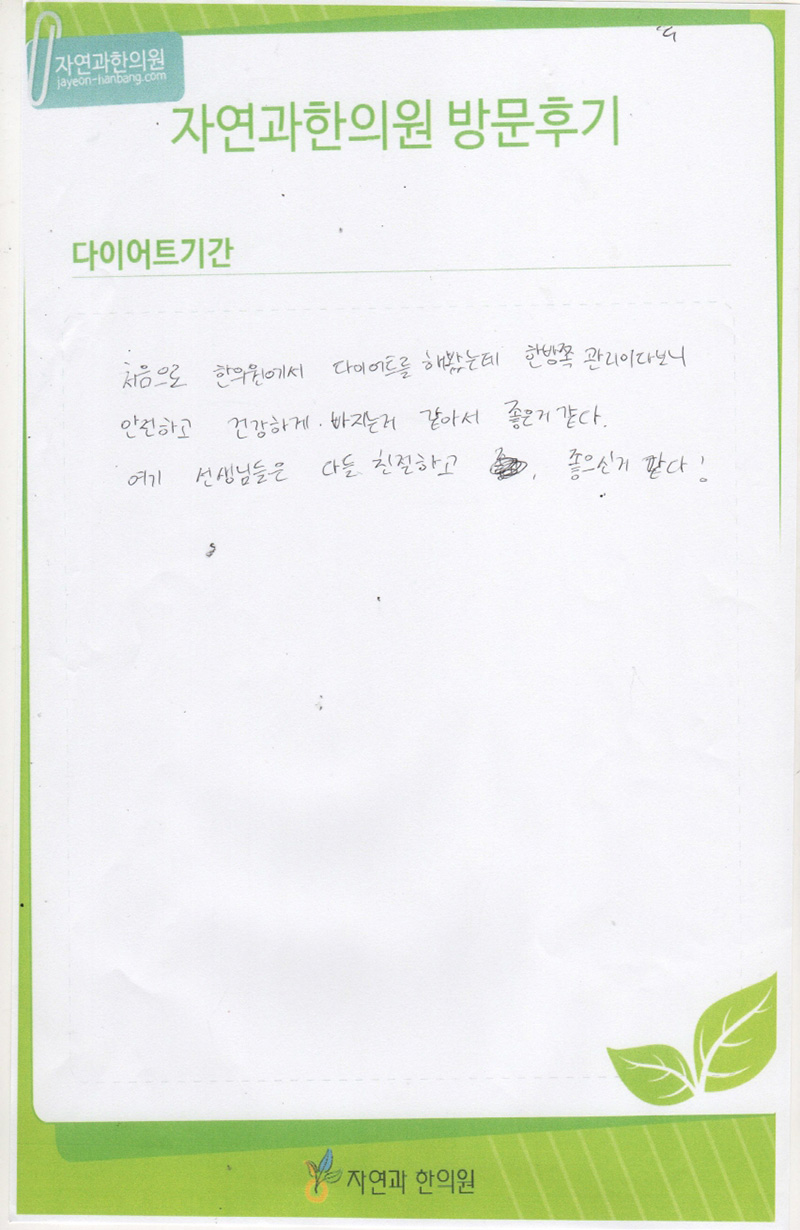 자연과한의원
jayeon-hanbang.com
자연과한의원 방문후기
다이어트기간
처음으로 한의원에서 다이어트를 해봤는데 한방쪽 관리이다보니
안전하고 건강하게 빠지는거 같아서 좋은거 같다.
여기 선생님들은 다들 친절하고 좋으신거 같다!
자연과 한의원